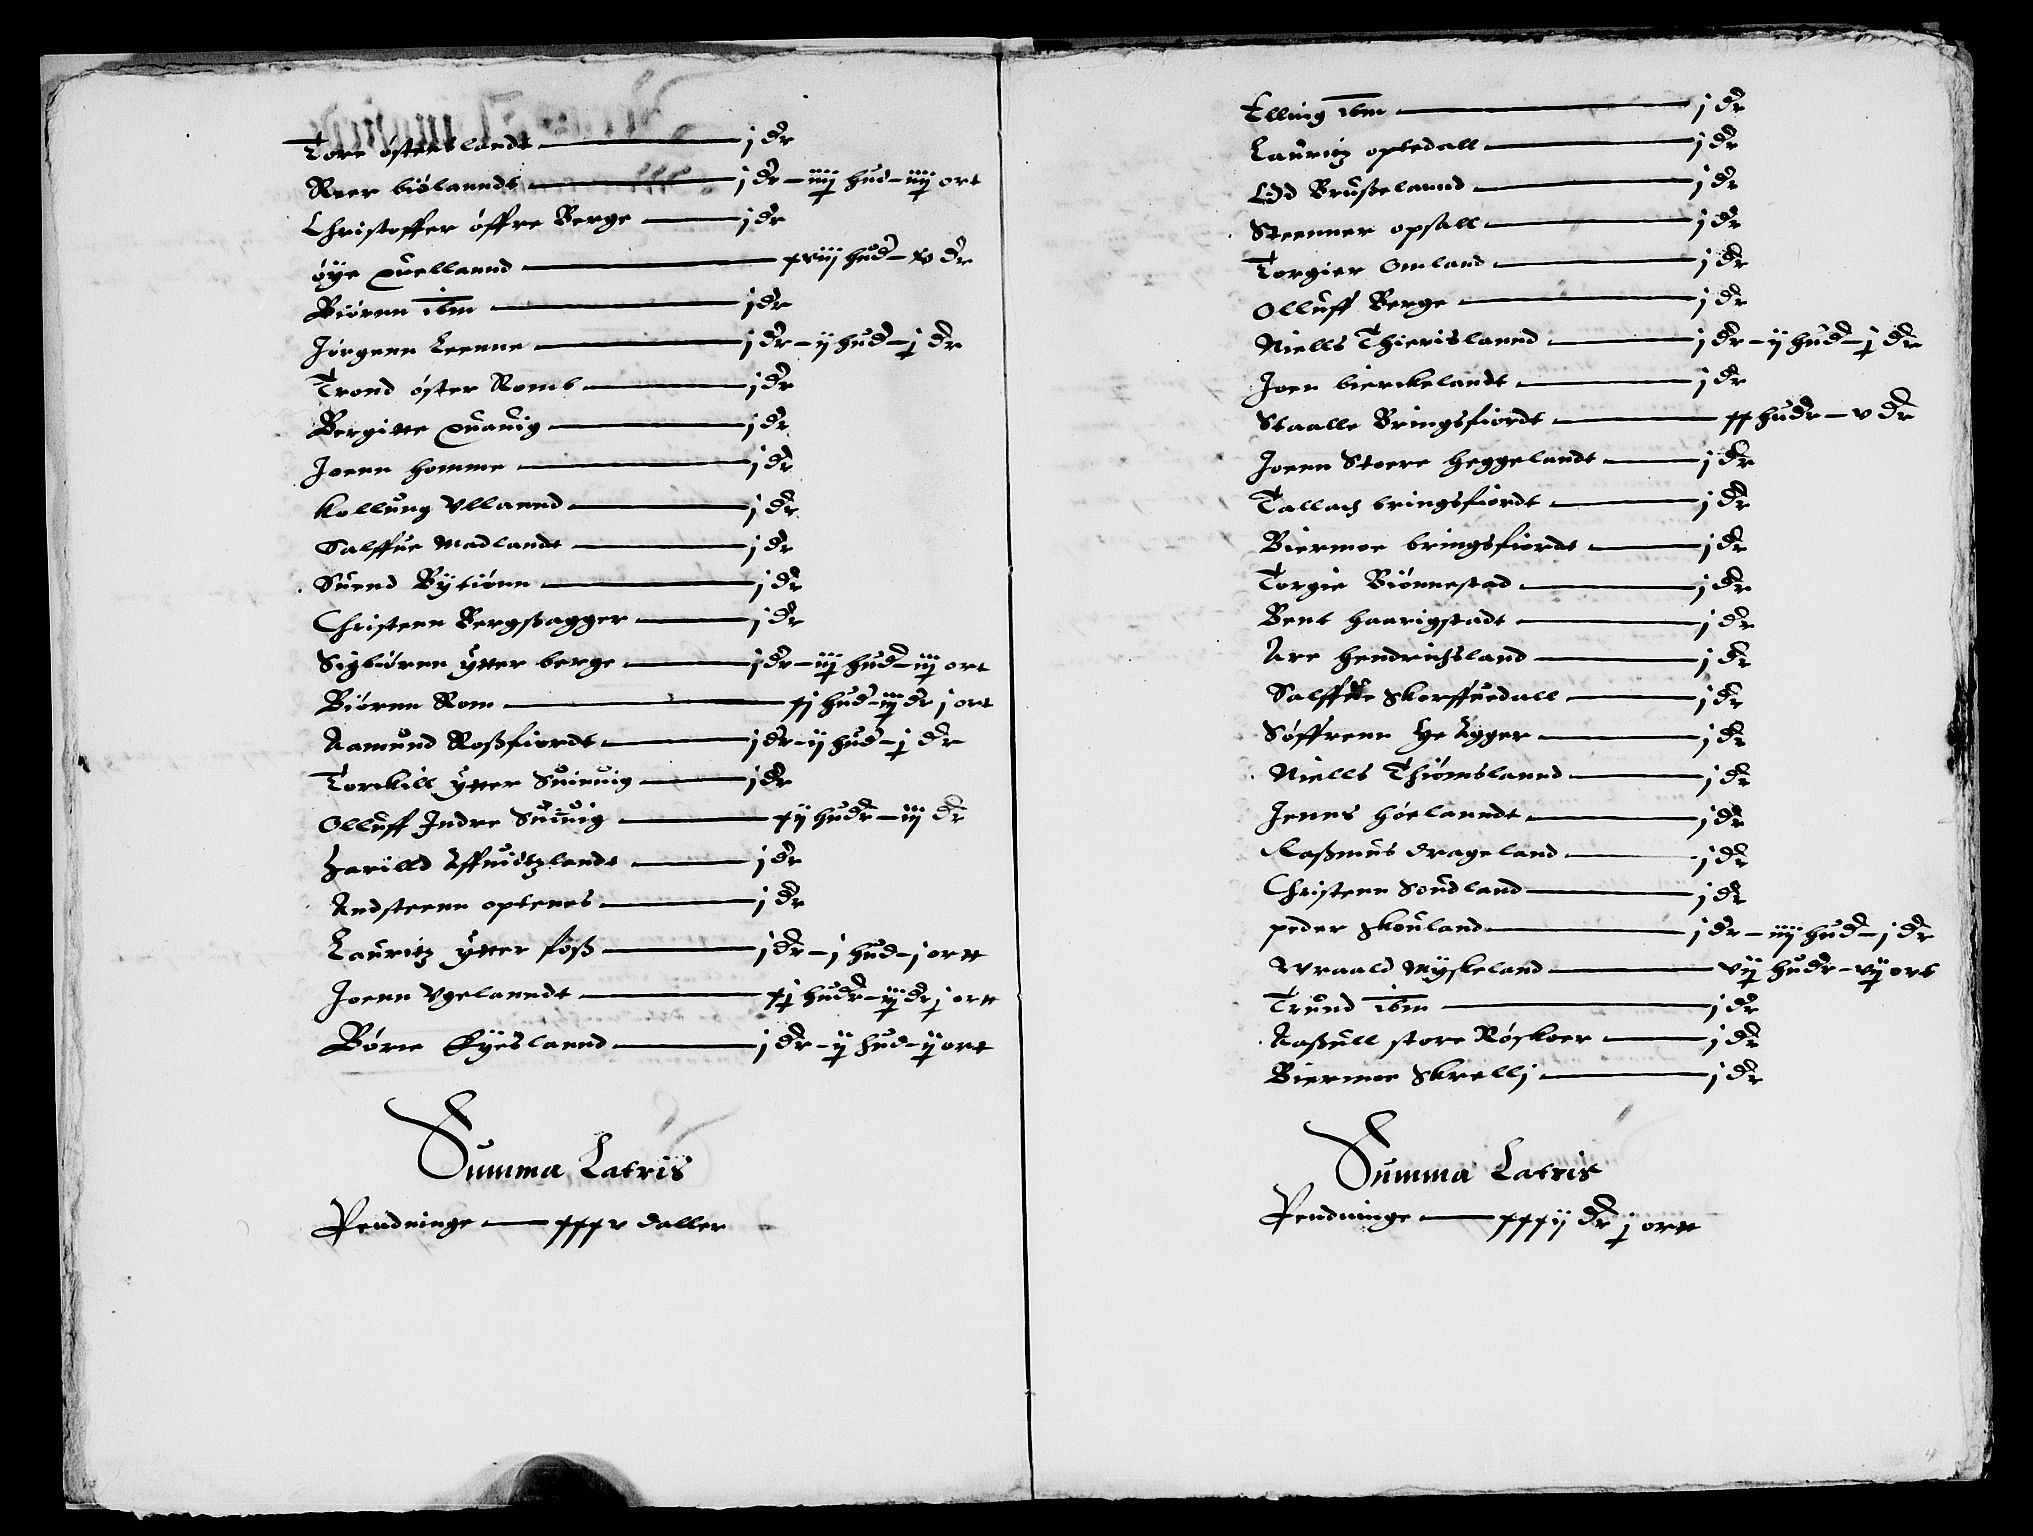 Tore østenslandt — j dr
Reer biølanndt — j dr – iiij hud – iiij ort
Christoffer øffre Berge — j dr
øye Quellannd — xviij hud – v dr
Biørnn ibm — j dr
Jørgenn Leenne — j dr – ij hud – j dr
Trond øster Romb — j dr
Bergitte Quauig — j dr
Joenn homme — j dr
Kollung Vllannd — j dr
Salffue Madlandt — j dr
Suend Bytiønn — j dr
Christenn Bergßagger — j dr
Sigbiørnn ytter berge — j dr – iij hud – iij ort
Biørnn Rom — xj hud – iij dr j ort
Aamund Roßfiordt — j dr – ij hud – j dr
Torckill ytter Suinuig — j dr
Olluff Indre Suinuig — xij hudr – iij dr
Harilld Affuidtzlandt — j dr
Andsteenn optenes — j dr
Lauritz ytter foß — j dr – j hud – j ortt
Joenn Vgelanndt — xj hudr – iij dr j ortt
Børre Eyeslannd — j dr – ij hud – ij ortt
Summa Latris
Pendninge — xxxv daller
Elling ibm — j dr
Lauritz optedall — j dr
Odd Brußelannd — j dr
Steenner opsall — j dr
Torgier Omland — j dr
Olluff Berge — j dr
Niells Thierislannd — j dr – ij hud – j dr
Joen bierckelandt — j dr
Staalle Bringsfiordt — xx hudr – v dr
Joenn Store heggelandt — j dr
Tallach bringsfiordt — j dr
Biermoe bringsfiordt — j dr
Torgie Biønnestad — j dr
Bent haarigstadt — j dr
Are hendrichsland — j dr
Salffue Skorffuedall — j dr
Søffrenn Ye Agger — j dr
Niells Thiømslannd — j dr
Jenns høelanndt — j dr
Raßmus drageland — j dr
Christenn Soudland — j dr
peder Skouland — j dr – iiij hud – j dr
Wraald Myskeland — vij hudr – vij ort
Trund ibm — j dr
Aaßull store Røskoer — j dr
Biermoe Skrellj — j dr
Summa Latris
Pendninge — xxxij dr j ortt
4